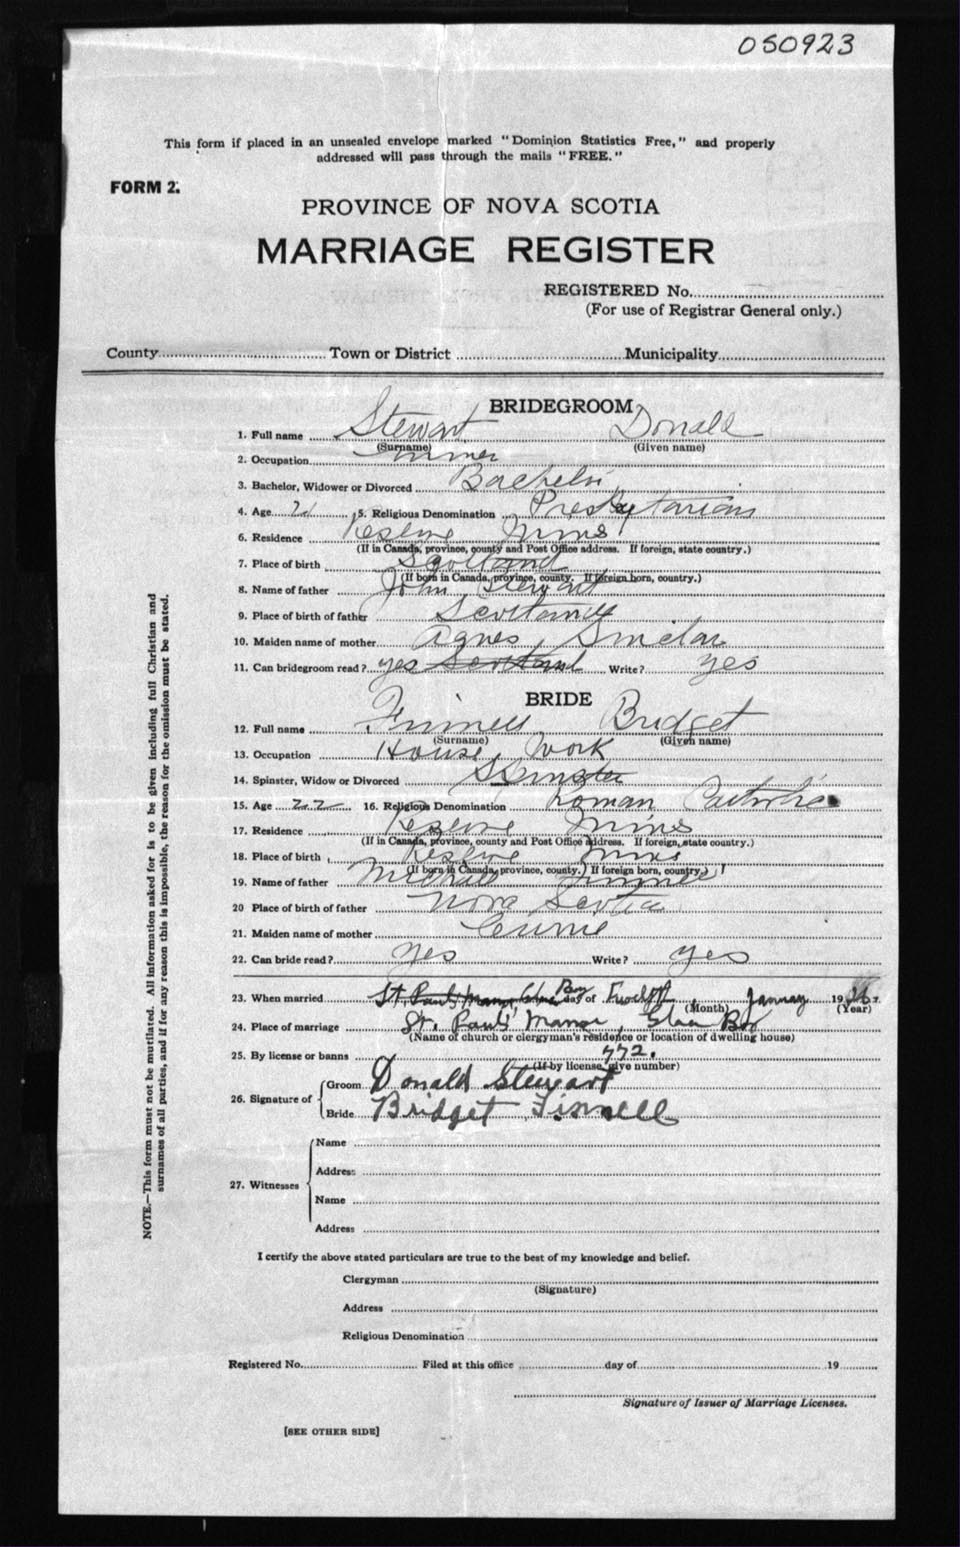 050923
This form if placed in an unsealed envelope marked "Dominion Statistics Free," and properly
addressed will pass through the mails "FREE."
FORM 2.
PROVINCE OF NOVA SCOTIA
MARRIAGE REGISTER
REGISTERED No.
(For use of Registrar General only.)
County Town or District Municipality
BRIDEGROOM
1. Full name Stewart Donald
(Surname) (Given name)
2. Occupation
3. Bachelor, Widower or Divorced Bachelor
4. Age 21 5. Religious Denomination Presbyterian
6. Residence Reserve Mines
(If in Canada, province, county and Post Office address. If foreign, state country.)
7. Place of birth Scotland
(If born in Canada, province, county. If foreign born, country.)
8. Name of father John Stewart
9. Place of birth of father Scotland
10. Maiden name of mother Agnes Sinclair
11. Can bridegroom read? yes Scotland Write? yes
BRIDE
12. Full name Finnell Bridget
(Surname) (Given name)
13. Occupation House Work
14. Spinster, Widow or Divorced Spinster
15. Age 22 16. Religious Denomination Roman Catholic
17. Residence Reserve Mines
(If in Canada, province, county and Post Office address. If foreign, state country.)
18. Place of birth Reserve Mines
(If born in Canada, province, county.) If foreign born, country.)
19. Name of father Michael Finnell
20 Place of birth of father Nova Scotia
21. Maiden name of mother Currie
22. Can bride read? Yes Write? yes
23. When married St. Pauls Manse Glace Bay day of January 19
(Month) (Year)
24. Place of marriage St. Pauls' Manse, Glace Bay
(Name of church or clergyman's residence or location of dwelling house)
25. By license or banns 772.
(If by license, give number)
26. Signature of Groom Donald Stewart
Bride Bridget Finnell
27. Witnesses
Name
Address
Name
Address
I certify the above stated particulars are true to the best of my knowledge and belief.
Clergyman
(Signature)
Address
Religious Denomination
Registered No. Filed at this office day of 19
Signature of Issuer of Marriage Licenses.
[SEE OTHER SIDE]
NOTE.—This form must not be mutilated. All information asked for is to be given including full Christian and
surnames of all parties, and if for any reason this is impossible, the reason for the omission must be stated.